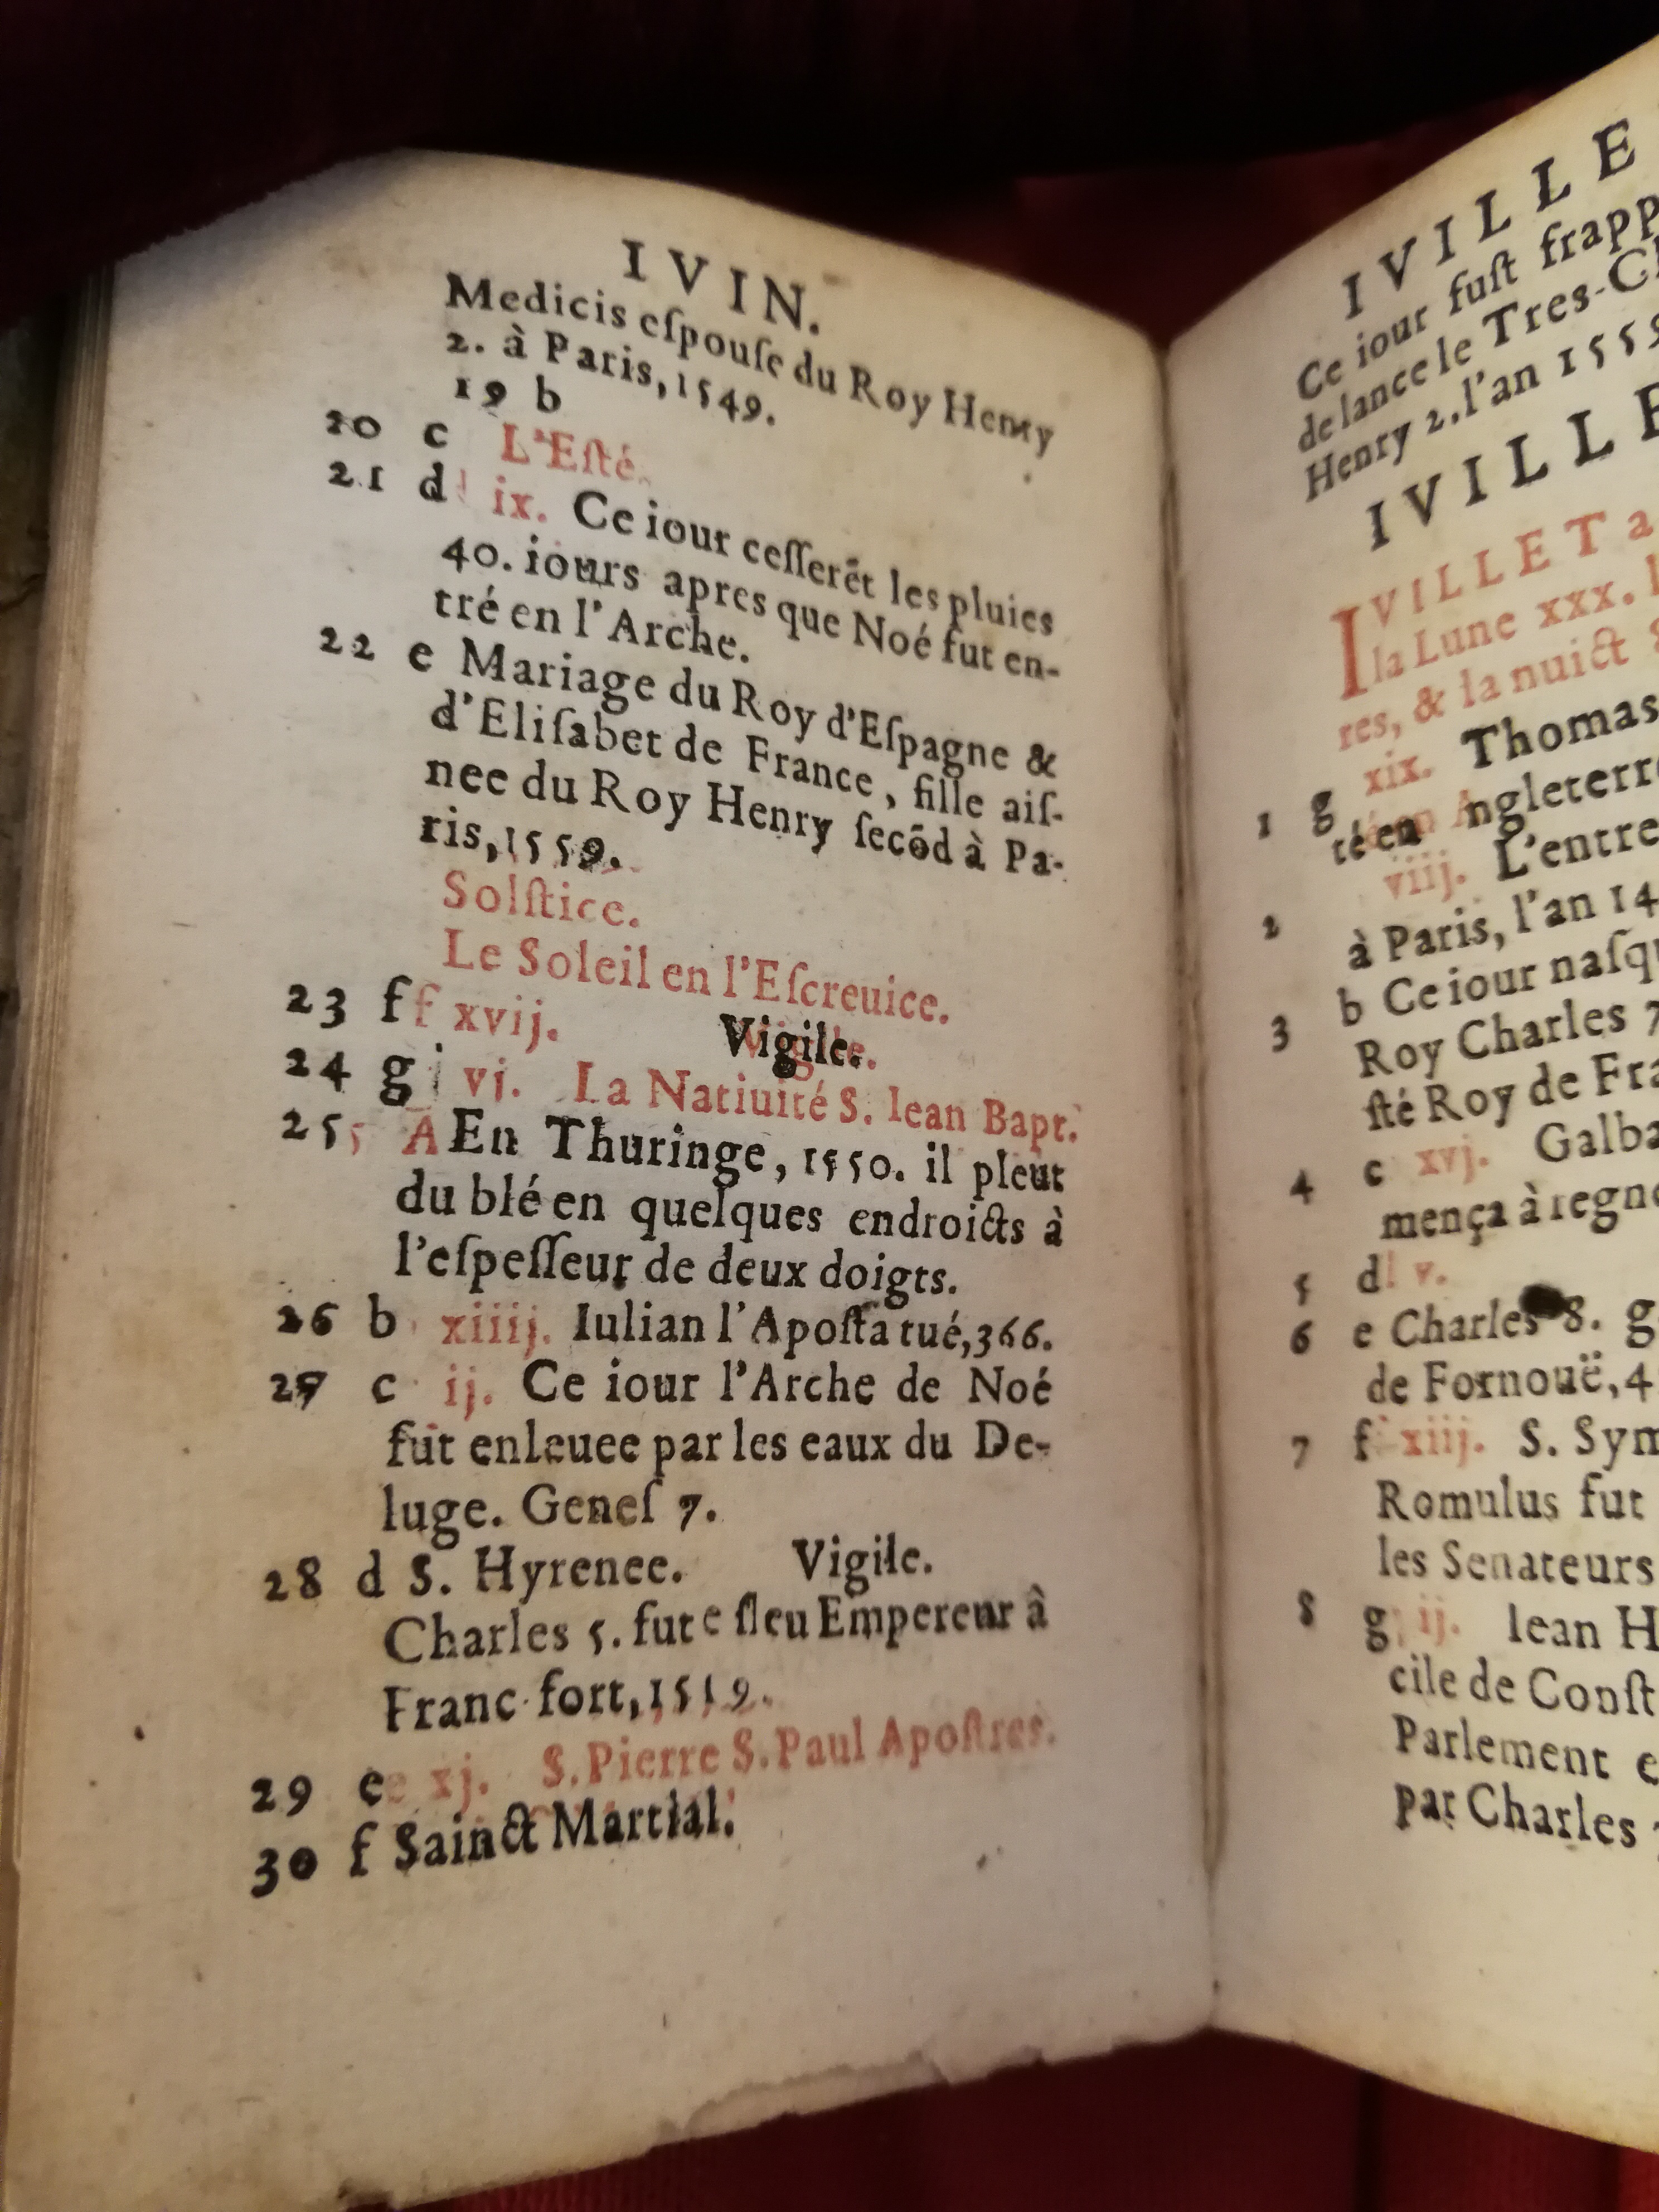 IVIN.
Medicis eſpouſe du Roy Henry
2. à Paris, 1549.
19 b
20 c L'Eſté.
21 d ix. Ce iour ceſſerēt les pluies
40. iours apres que Noé fut en-
tré en l'Arche.
22 e Mariage du Roy d'Eſpagne &
d'Eliſabet de France, fille aiſ-
nee du Roy Henry ſecōd à Pa-
ris, 1559.
Solſtice.
Le Soleil en l'Eſcreuice.
23 f xvij. Vigile.
24 g vj. La Natiuité S. Iean Bapt.
25 A En Thuringe, 1550. il pleut
du blé en quelques endroicts à
l'eſpeſſeur de deux doigts.
26 b xiiij. Iulian l'Apoſta tué, 366.
27 c ij. Ce iour l'Arche de Noé
fut enleuee par les eaux du De-
luge. Geneſ 7.
28 d S. Hyrenee. Vigile.
Charles 5. fut eſleu Empereur à
Franc fort, 1519.
29 e xj. S. Pierre S. Paul Apoſtres.
30 f Sainct Martial.
IVILLE
Ce iour fuſt frapp
de lance le Tres-C
Henry 2. l'an 1559
IVILLE
IVILLET a
la Lune xxx.
res, & la nuict
1 g xix. Thomas
té en Angleterre
2 viij. L'entre
à Paris, l'an 14
3 b Ce iour naſqu
Roy Charles 7
ſté Roy de Fra
4 c xvj. Galba
mença à regne
5 d v.
6 e Charles 8. g
de Fornouë, 4
7 f xiij. S. Sym
Romulus fut
les Senateurs
8 g ij. Iean H
cile de Conſt
Parlement e
par Charles